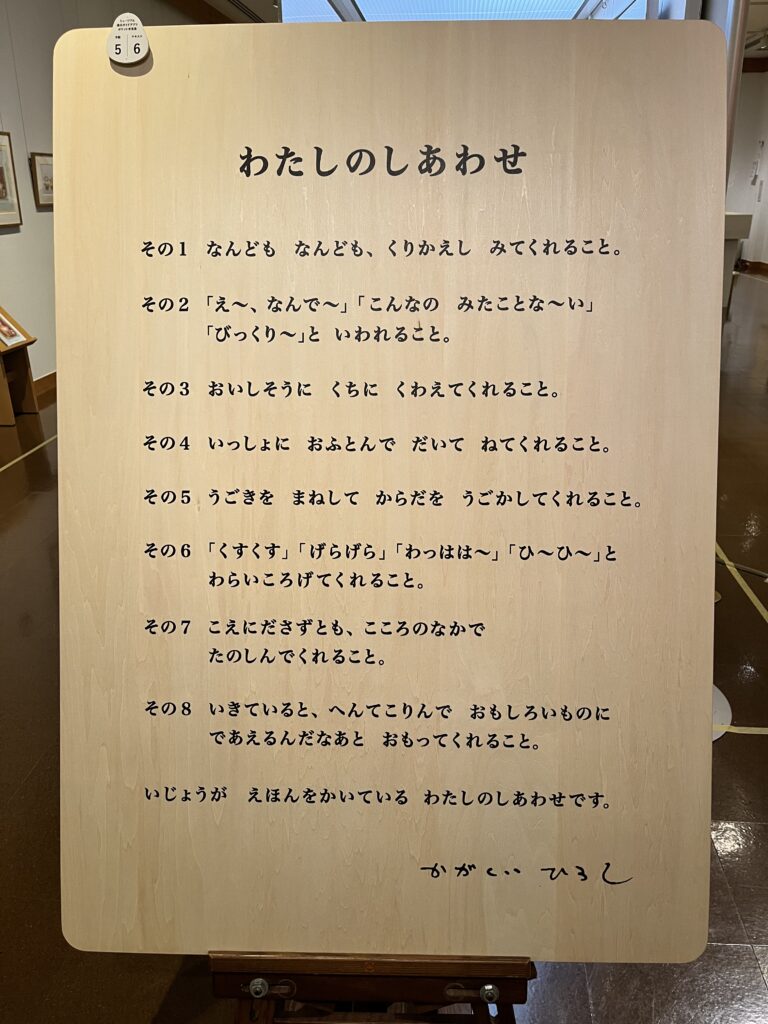 5 6
わたしのしあわせ
その1 なんども なんども、くりかえし みてくれること。
その2 「え〜、なんで〜」「こんなの みたことな〜い」
「びっくり〜」と いわれること。
その3 おいしそうに くちに くわえてくれること。
その4 いっしょに おふとんで だいて ねてくれること。
その5 うごきを まねして からだを うごかしてくれること。
その6 「くすくす」「げらげら」「わっはは〜」「ひ〜ひ〜」と
わらいころげてくれること。
その7 こえにださずとも、こころのなかで
たのしんでくれること。
その8 いきていると、へんてこりんで おもしろいものに
であえるんだなあと おもってくれること。
いじょうが えほんをかいている わたしのしあわせです。
かがくい ひろし